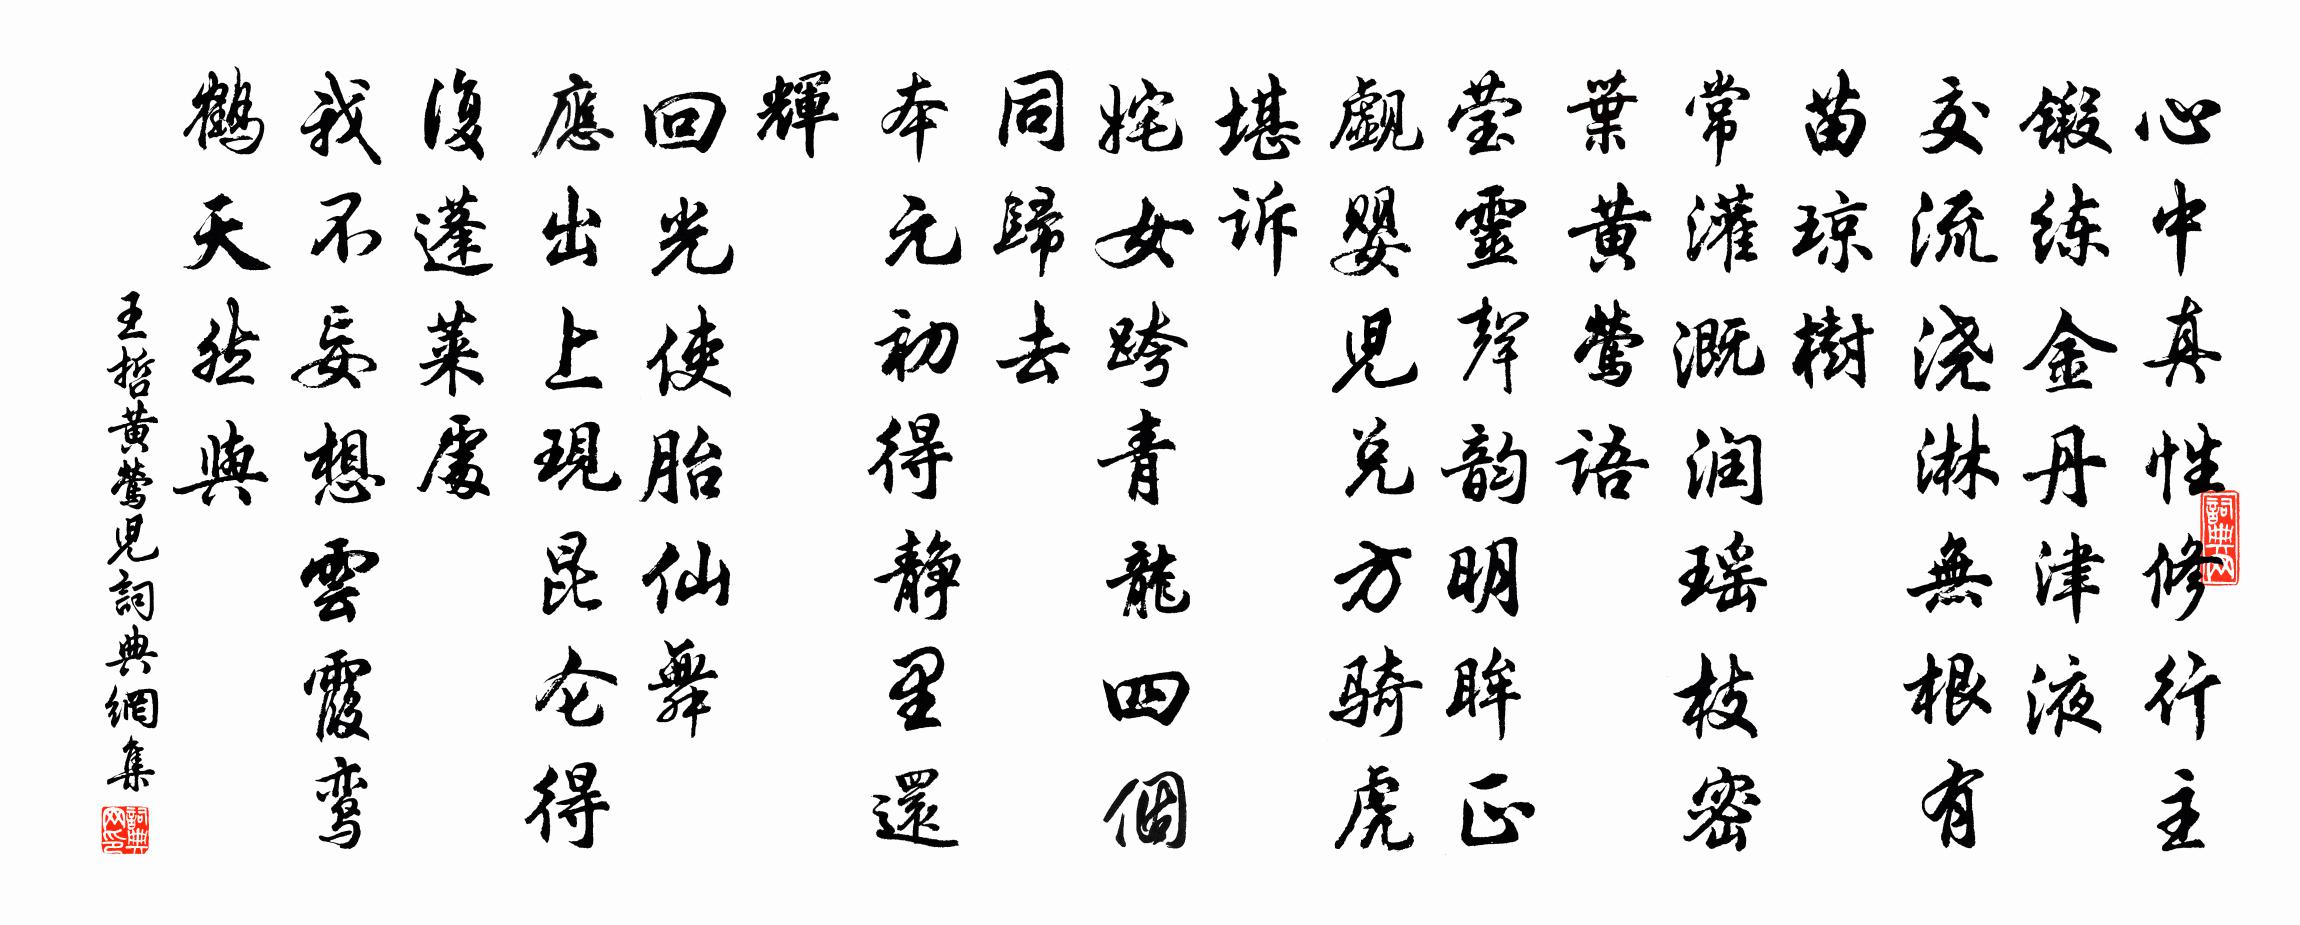 心中真性修行主
鍛练金丹津液
交流浇淋無根有
苗琼樹
常灌溉润瑶枝密
葉黄莺語
莹靈聲韵明眸正
觑嬰兒兑方骑虎
堪诉
姹女跨青龍四個
同歸去
本元初得静里還
輝
回光使胎仙舞
應出上現昆仑得
復蓬莱處
我不妄想雲霞鸾
鶴天然與
王哲黄鶯兒詞典網集
詞典网
詞典网印